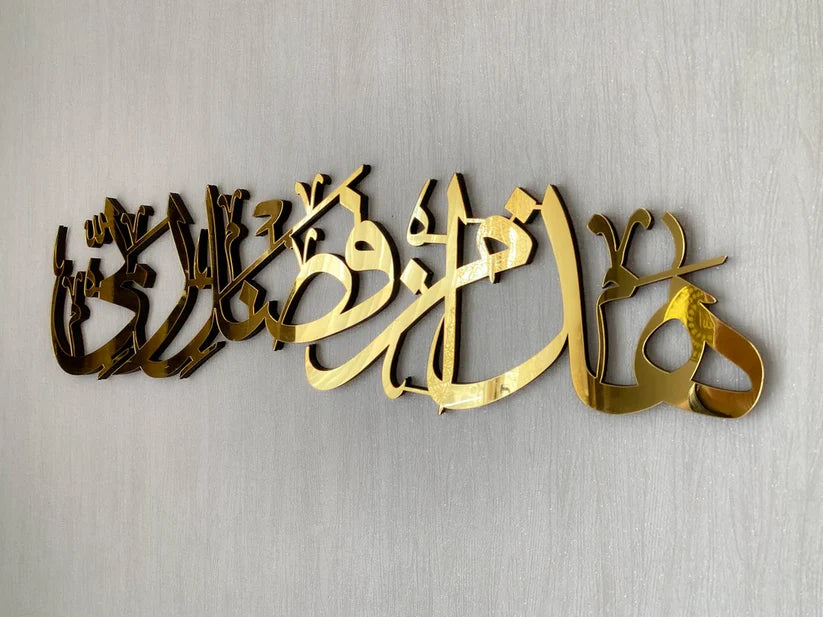 هَذَا مِنْ فَضْلِ رَبِّي